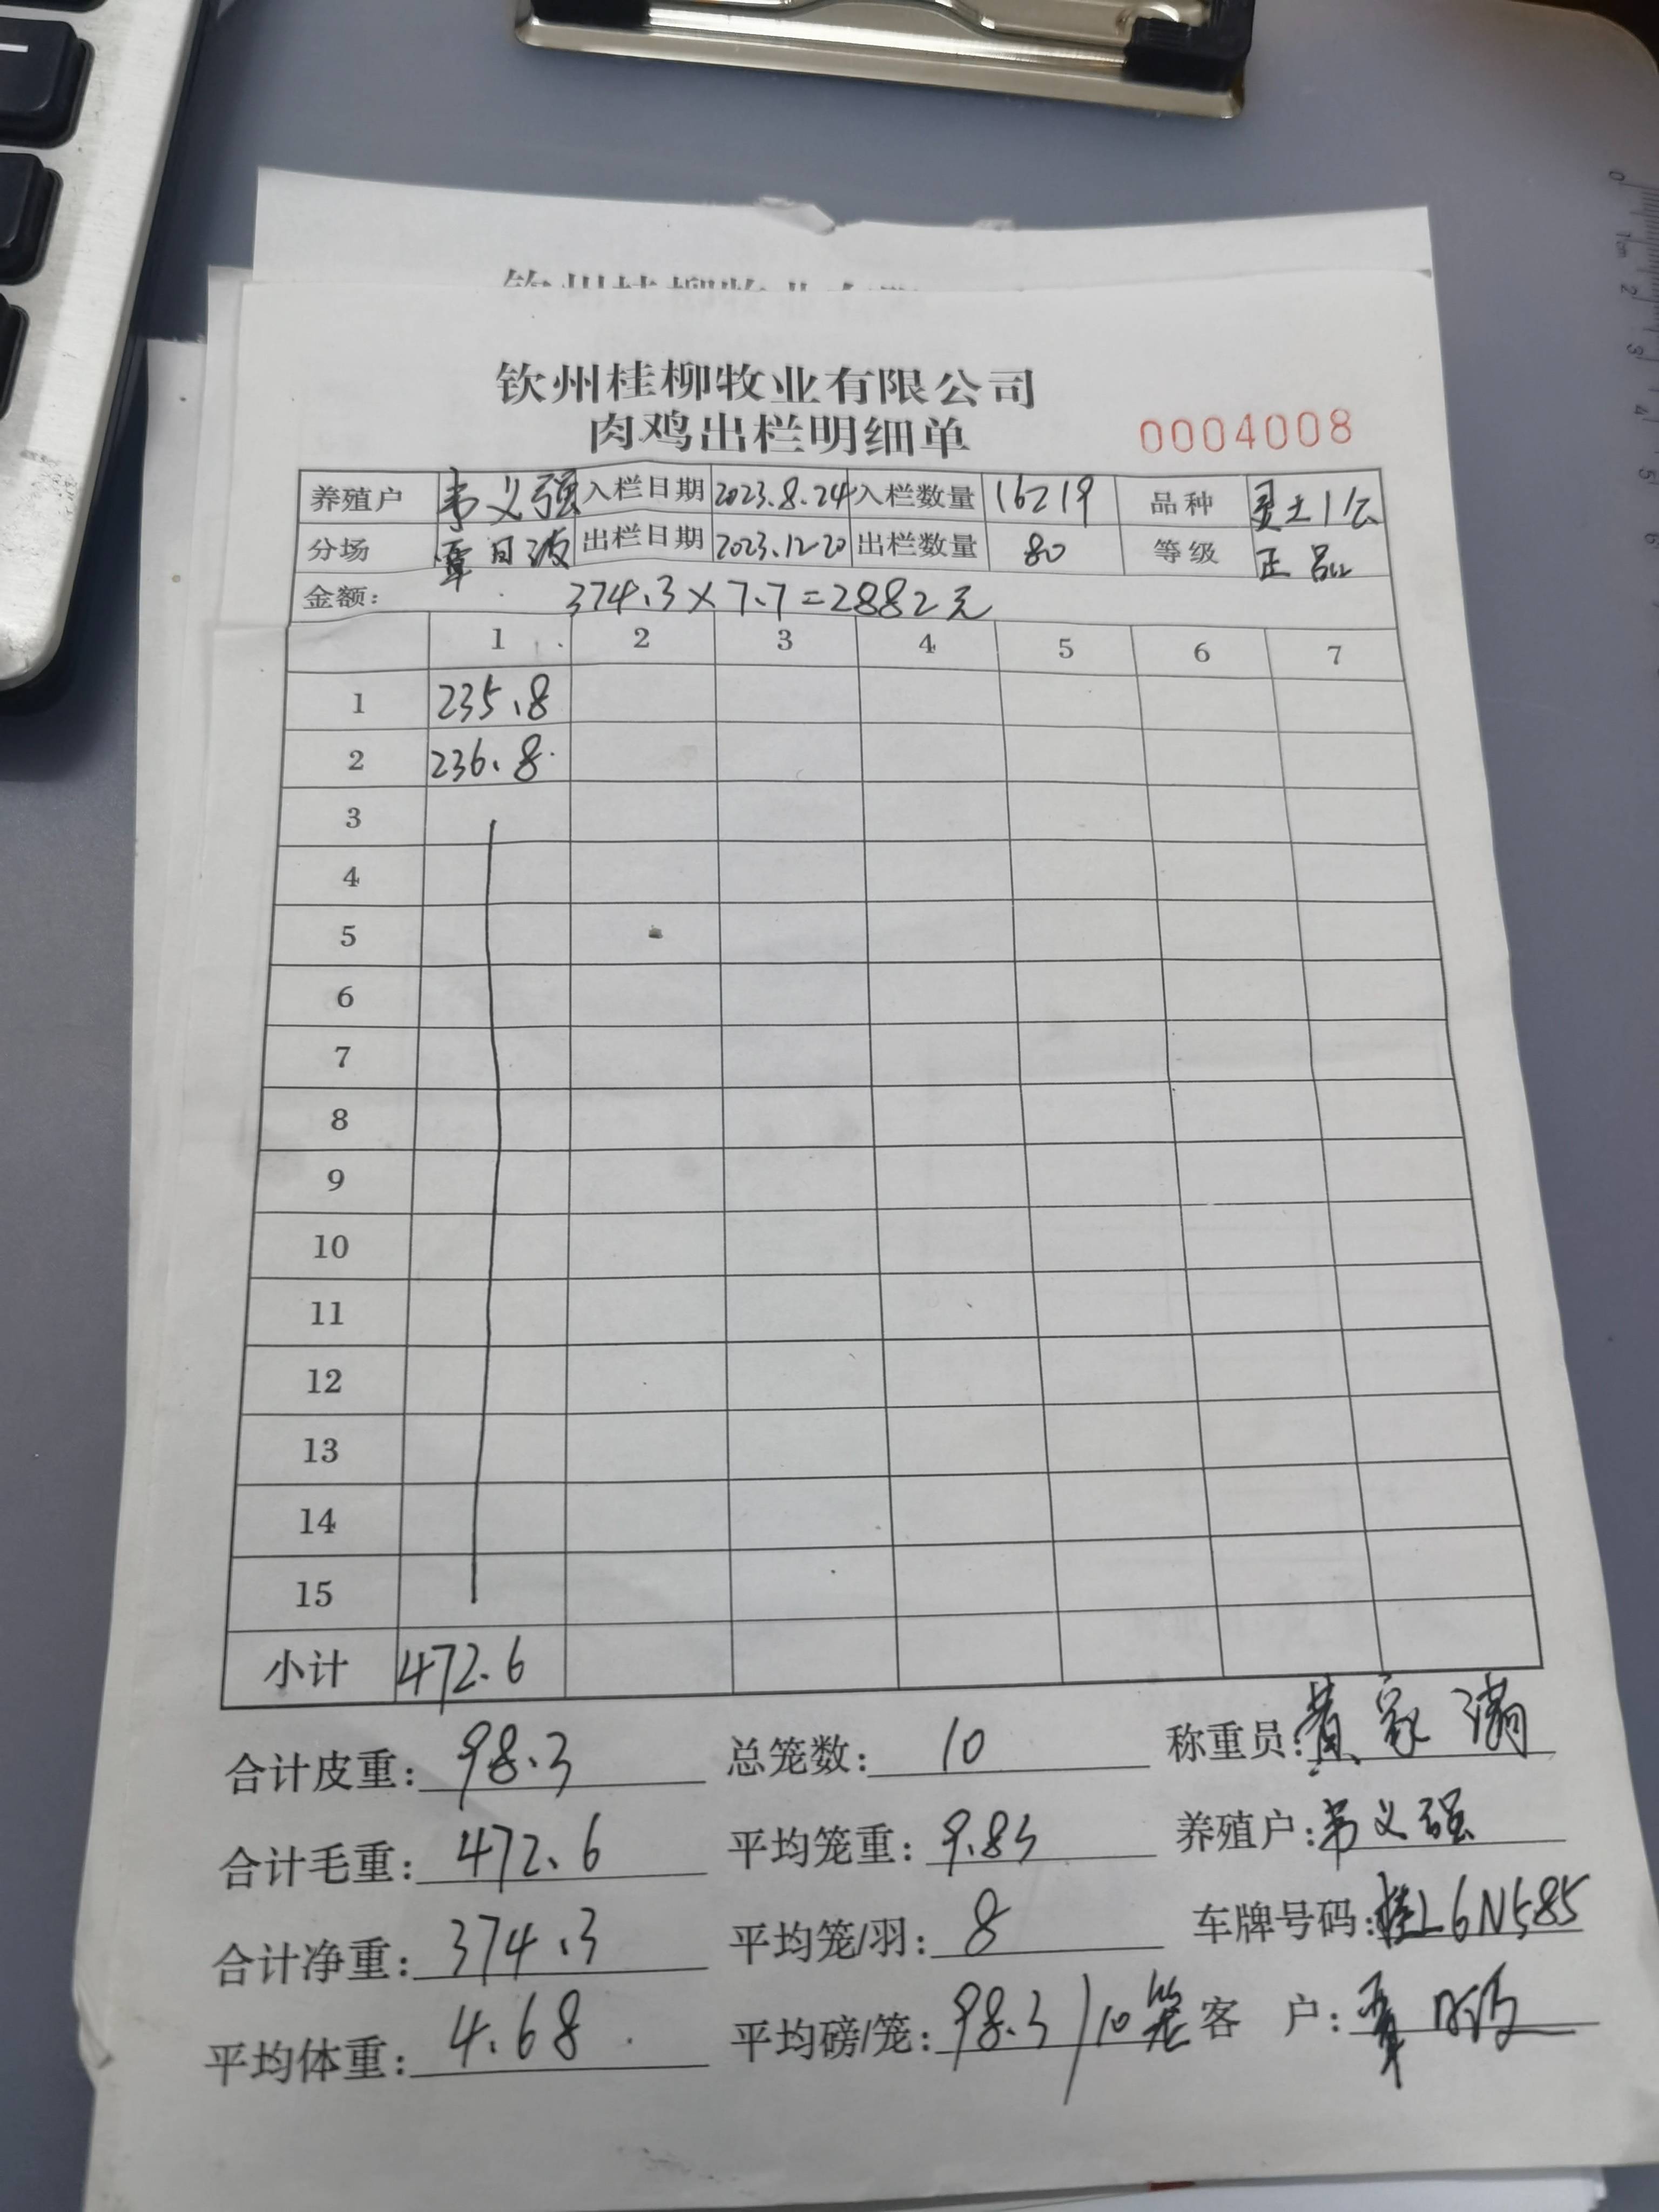 钦州桂柳牧业有限公司
肉鸡出栏明细单 0004008
养殖户 韦义强 入栏日期 2023.8.24 入栏数量 16219 品种 灵土1公
分场 覃日波 出栏日期 2023.12.20 出栏数量 80 等级 正品
金额: 374.3×7.7=2882元
1 2 3 4 5 6 7
1 235.8
2 236.8
3
4
5
6
7
8
9
10
11
12
13
14
15
小计 472.6
合计皮重: 98.3 总笼数: 10 称重员: 黄家满
合计毛重: 472.6 平均笼重: 9.83 养殖户: 韦义强
合计净重: 374.3 平均笼/羽: 8 车牌号码: 桂L6N585
平均体重: 4.68 平均磅/笼: 98.3/10笼 客户: 覃